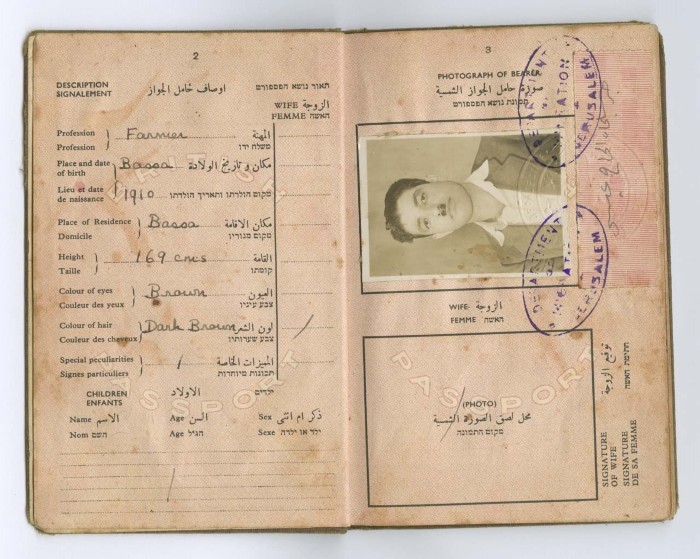 2
DESCRIPTION اوصاف حامل الجواز תאור נושא הפספורט
SIGNALEMENT
WIFE الزوجة
FEMME האשה
Profession Farmer المهنة
Profession משלח ידו
Place and date of birth Bassa مكان و تاريخ الولادة
Lieu et date de naissance 1910 מקום הולדתו ותאריך הולדתו
Place of Residence Bassa مكان الاقامة
Domicile מקום מגוריו
Height 169 cms القامة
Taille קומתו
Colour of eyes Brown العيون
Couleur des yeux צבע עיניו
Colour of hair Dark Brown لون الشعر
Couleur des cheveux צבע שערותיו
Special peculiarities / المميزات الخاصة
Signes particuliers תכונות מיוחדות
CHILDREN الاولاد ילדים
ENFANTS
Name الاسم Age السن Sex ذكر ام انثى
Nom השם Age הגיל Sexe ילד או ילדה
PASSPORT
3
PHOTOGRAPH OF BEARER
صورة حامل الجواز الشمسية
תמונת נושא הפספורט
DEPARTMENT OF IMMIGRATION JERUSALEM
DEPARTMENT OF IMMIGRATION JERUSALEM
WIFE الزوجة
FEMME האשה
(PHOTO)
محل لصق الصورة الشمسية
מקום התמונה
PASSPORT
SIGNATURE OF WIFE توقيع الزوجة
SIGNATURE DE SA FEMME חתימת האשה